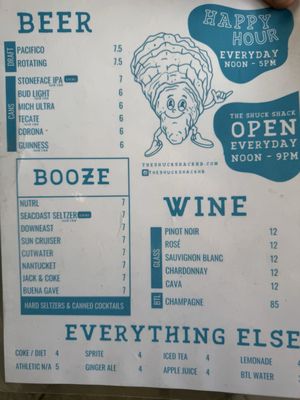 BEER
HAPPY
HOUR
EVERYDAY
NOON - 5PM
DRAFT
PACIFICO 7.5
ROTATING 7.5
CANS
STONEFACE IPA 7
BUD LIGHT 6
MICH ULTRA 6
TECATE 6
CORONA 6
GUINNESS 6
THE SHUCK SHACK
OPEN
EVERYDAY
NOON - 9PM
THESHUCKSHACKNB.COM
THESHUCKSHACKNB
BOOZE
NUTRL 7
SEACOAST SELTZER 7
DOWNEAST 7
SUN CRUISER 7
CUTWATER 7
NANTUCKET 7
JACK & COKE 7
BUENA GAVE 7
HARD SELTZERS & CANNED COCKTAILS
WINE
GLASS
PINOT NOIR 12
ROSÉ 12
SAUVIGNON BLANC 12
CHARDONNAY 12
CAVA 12
BTL
CHAMPAGNE 85
EVERYTHING ELSE
COKE / DIET 4 SPRITE 4 ICED TEA 4 LEMONADE
ATHLETIC N/A 5 GINGER ALE 4 APPLE JUICE 4 BTL WATER